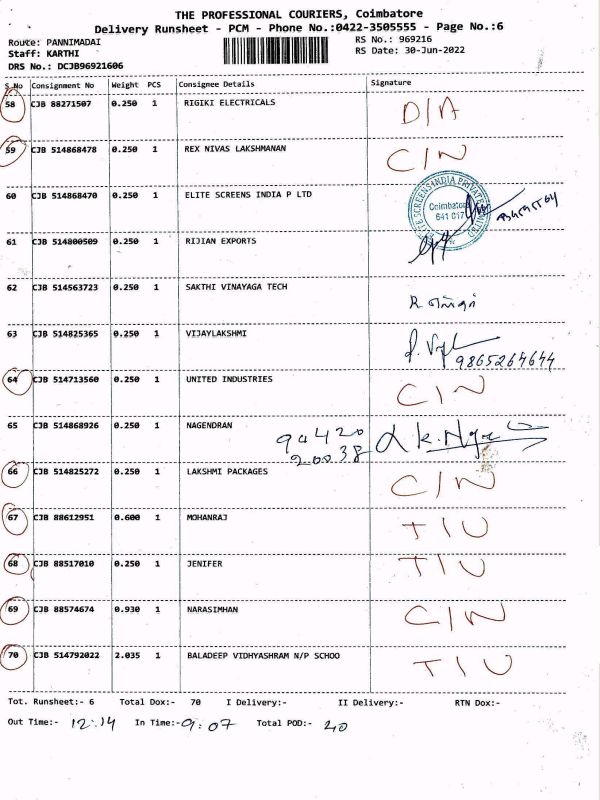 THE PROFESSIONAL COURIERS, Coimbatore
Delivery Runsheet - PCM - Phone No.:0422-3505555 - Page No.:6
Route: PANNIMADAI RS No.: 969216
Staff: KARTHI RS Date: 30-Jun-2022
DRS No.: DCJB96921606
S No Consignment No Weight PCS Consignee Details Signature
58 CJB 88271507 0.250 1 RIGIKI ELECTRICALS D/A
59 CJB 514868478 0.250 1 REX NIVAS LAKSHMANAN C/N
60 CJB 514868470 0.250 1 ELITE SCREENS INDIA P LTD
ELITE SCREENS INDIA PRIVATE LIMITED
Coimbatore
641 017
61 CJB 514800509 0.250 1 RIJIAN EXPORTS
62 CJB 514563723 0.250 1 SAKTHI VINAYAGA TECH
63 CJB 514825365 0.250 1 VIJAYLAKSHMI
9865264644
64 CJB 514713560 0.250 1 UNITED INDUSTRIES C/N
65 CJB 514868926 0.250 1 NAGENDRAN 94420
20038
66 CJB 514825272 0.250 1 LAKSHMI PACKAGES C/N
67 CJB 88612951 0.600 1 MOHANRAJ T I U
68 CJB 88517010 0.250 1 JENIFER T I U
69 CJB 88574674 0.930 1 NARASIMHAN C/N
70 CJB 514792022 2.035 1 BALADEEP VIDHYASHRAM N/P SCHOO T I U
Tot. Runsheet:- 6 Total Dox:- 70 I Delivery:- II Delivery:- RTN Dox:-
Out Time:- 12:14 In Time:- 9:07 Total POD:- 40